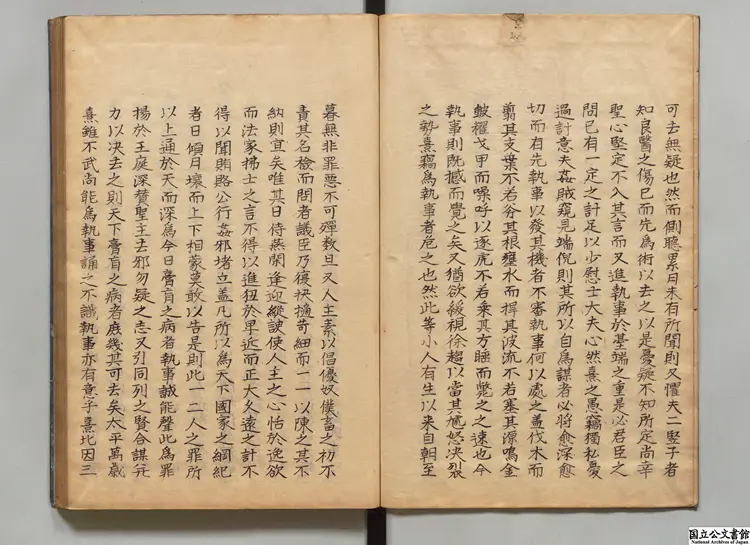 可去無疑也然而側聽累日未有所聞則又懼夫二竪子者
知良醫之傷已而先為術以去之以是憂疑不知所定尚幸
聖心堅定不入其言而又進執事於基端之重是必君臣之
間已有一定之計足以少慰士大夫心然熹之愚竊獨私憂
過計意夫姦賊窺見端倪則其所以自為謀者必將愈深愈
切而有先執事以發其機者不審執事何以處之蓋伐木而
翦其支葉不若夯其根壅水而捍其波流不若塞其源鳴金
皷櫂戈甲而噪呼以逐虎不若乘其方睡而斃之之速也今
執事則既撼而覺之矣又猶欲緩視徐趨以當其尩怒决裂
之勢熹竊為執事者危之也然此等小人有生以來自朝至
暮無非罪惡不可殫數旦又人主素以倡優奴僕畜之初不
責其名檢而問者議臣乃復抉擿苛細而一一以陳之其不
納則宜矣唯其日侍燕閒逢迎縱諛使人主之心怡於逸欲
而法家拂士之言不得以進狃於卑近而正大久遠之計不
得以聞賄賂公行姦邪堵立蓋凡所以為天下國家之綱紀
者日傾月壞而上下相蒙莫敢以告是則此一二人之罪所
以上通於天而深為今日膏肓之病者執事誠能聲此為罪
揚於王庭深贊聖主去邪勿疑之志又引同列之賢合謀并
力以决去之則天下膏肓之病者庻幾其可去矣太平萬歲
熹雖不武尚能為執事誦之不識執事亦有意乎熹比因三
国立公文書館
National Archives of Japan